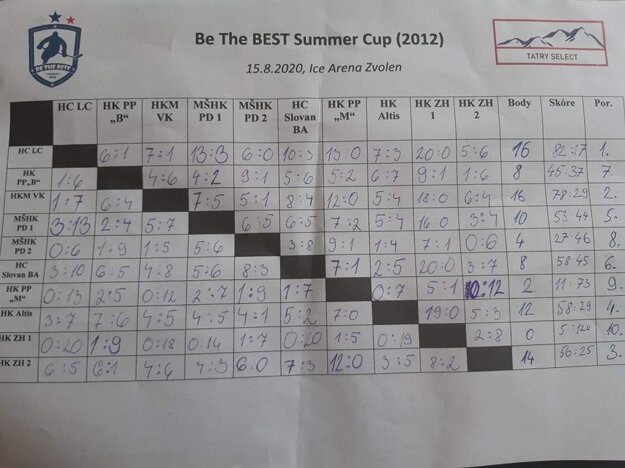 Be The BEST Summer Cup (2012)
15.8.2020, Ice Arena Zvolen
BE THE BEST
TATRY SELECT
HC LC HK PP „B" HKM VK MŠHK PD 1 MŠHK PD 2 HC Slovan BA HK PP „M" HK Altis HK ZH 1 HK ZH 2 Body Skóre Por.
HC LC 6:1 7:1 13:3 6:0 10:3 13:0 7:3 20:0 5:6 16 82:17 1.
HK PP„B" 1:6 4:6 4:2 9:1 5:6 5:2 6:7 9:1 1:6 8 45:37 7.
HKM VK 1:7 6:4 7:5 5:1 8:4 12:0 5:4 18:0 6:4 16 78:29 2.
MŠHK PD 1 3:13 2:4 5:7 6:5 6:5 7:2 5:4 16:0 3:4 10 53:44 5.
MŠHK PD 2 0:6 1:9 1:5 5:6 3:8 9:1 1:4 7:1 0:6 4 27:46 8.
HC Slovan BA 3:10 6:5 4:8 5:6 8:3 7:1 2:5 20:0 3:7 8 58:45 6.
HK PP „M" 0:13 2:5 0:12 2:7 1:9 1:7 0:7 5:1 0:12 2 11:73 9.
HK Altis 3:7 7:6 4:5 4:5 4:1 5:2 7:0 19:0 5:3 12 58:29 4.
HK ZH 1 0:20 1:9 0:18 0:14 1:7 0:20 1:5 0:19 2:8 0 5:120 10.
HK ZH 2 6:5 6:1 4:6 4:3 6:0 7:3 12:0 3:5 8:2 14 56:25 3.